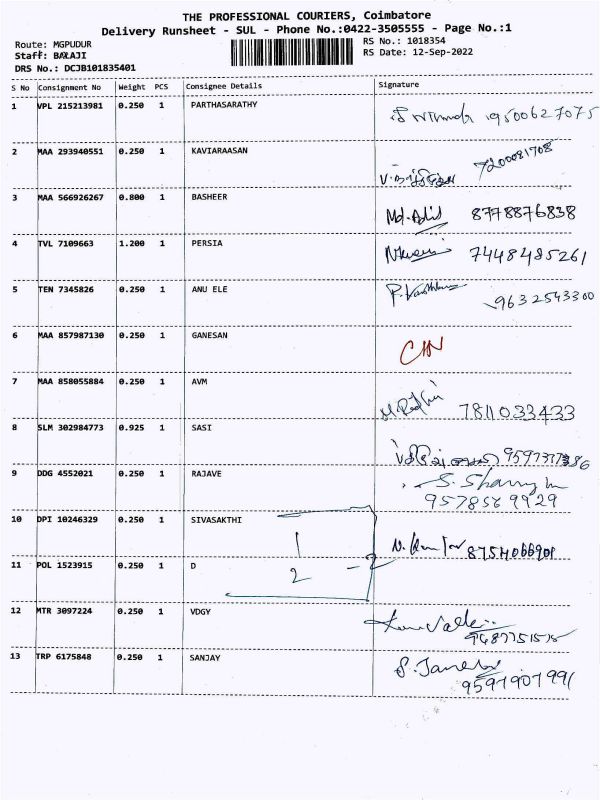 THE PROFESSIONAL COURIERS, Coimbatore
Delivery Runsheet - SUL - Phone No.:0422-3505555 - Page No.:1
Route: MGPUDUR
RS No.: 1018354
Staff: BALAJI
RS Date: 12-Sep-2022
DRS No.: DCJB101835401
S No Consignment No Weight PCS Consignee Details Signature
1 VPL 215213981 0.250 1 PARTHASARATHY 9500627075
2 MAA 293940551 0.250 1 KAVIARAASAN 7200081708
3 MAA 566926267 0.800 1 BASHEER Md. Adil 8778876838
4 TVL 7109663 1.200 1 PERSIA 7448485261
5 TEN 7345826 0.250 1 ANU ELE 9632543300
6 MAA 857987130 0.250 1 GANESAN
7 MAA 858055884 0.250 1 AVM 7811033433
8 SLM 302984773 0.925 1 SASI
9 DDG 4552021 0.250 1 RAJAVE
9578569929
10 DPI 10246329 0.250 1 SIVASAKTHI 1
11 POL 1523915 0.250 1 D 2 - 2
12 MTR 3097224 0.250 1 VDGY
13 TRP 6175848 0.250 1 SANJAY
9597907991